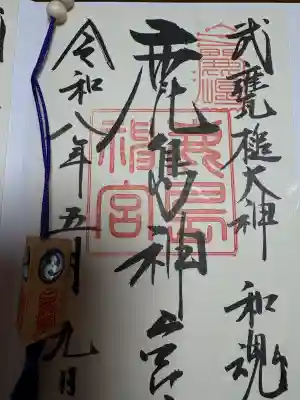 武甕槌大神 和魂
鹿島神宮
鹿島
神宮
令和八年五月九日